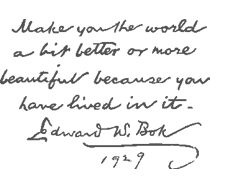 Make you the world
a bit better or more
beautiful because you
have lived in it.
Edward W. Bok
1929